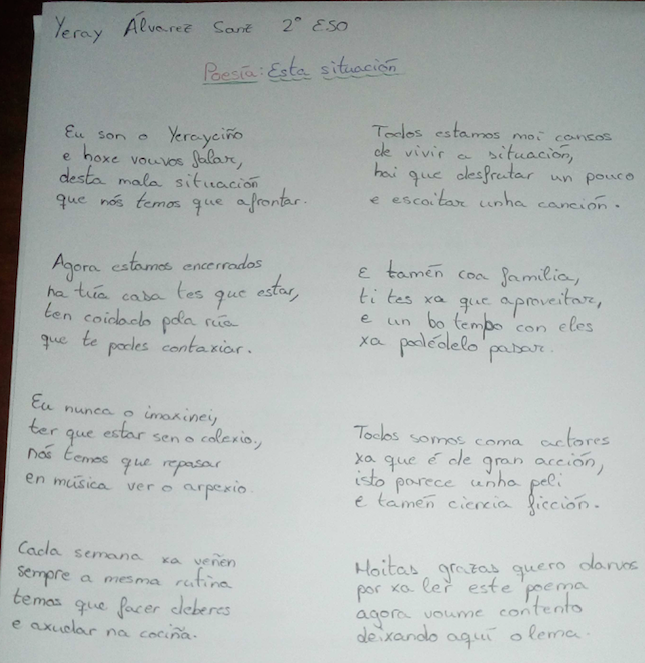 Yeray Álvarez Sanz 2º ESO
Poesía: Esta situación
Eu son o Yerayciño
e hoxe vouvos falar,
desta mala situación
que nós temos que afrontar.
Agora estamos encerrados
na túa casa tes que estar,
ten coidado pola rúa
que te podes contaxiar.
Eu nunca o imaxinei,
ter que estar sen o colexio,
nós temos que repasar
en música ver o arpexio.
Cada semana xa veñen
sempre a mesma rutina
temos que facer deberes
e axudar na cociña.
Todos estamos moi cansos
de vivir a situación,
hai que desfrutar un pouco
e escoitar unha canción.
E tamén coa familia,
ti tes xa que aproveitar,
e un bo tempo con eles
xa podédelo pasar.
Todos somos coma actores
xa que é de gran acción,
isto parece unha peli
e tamén ciencia ficción.
Moitas grazas quero darvos
por xa ler este poema
agora voume contento
deixando aquí o lema.